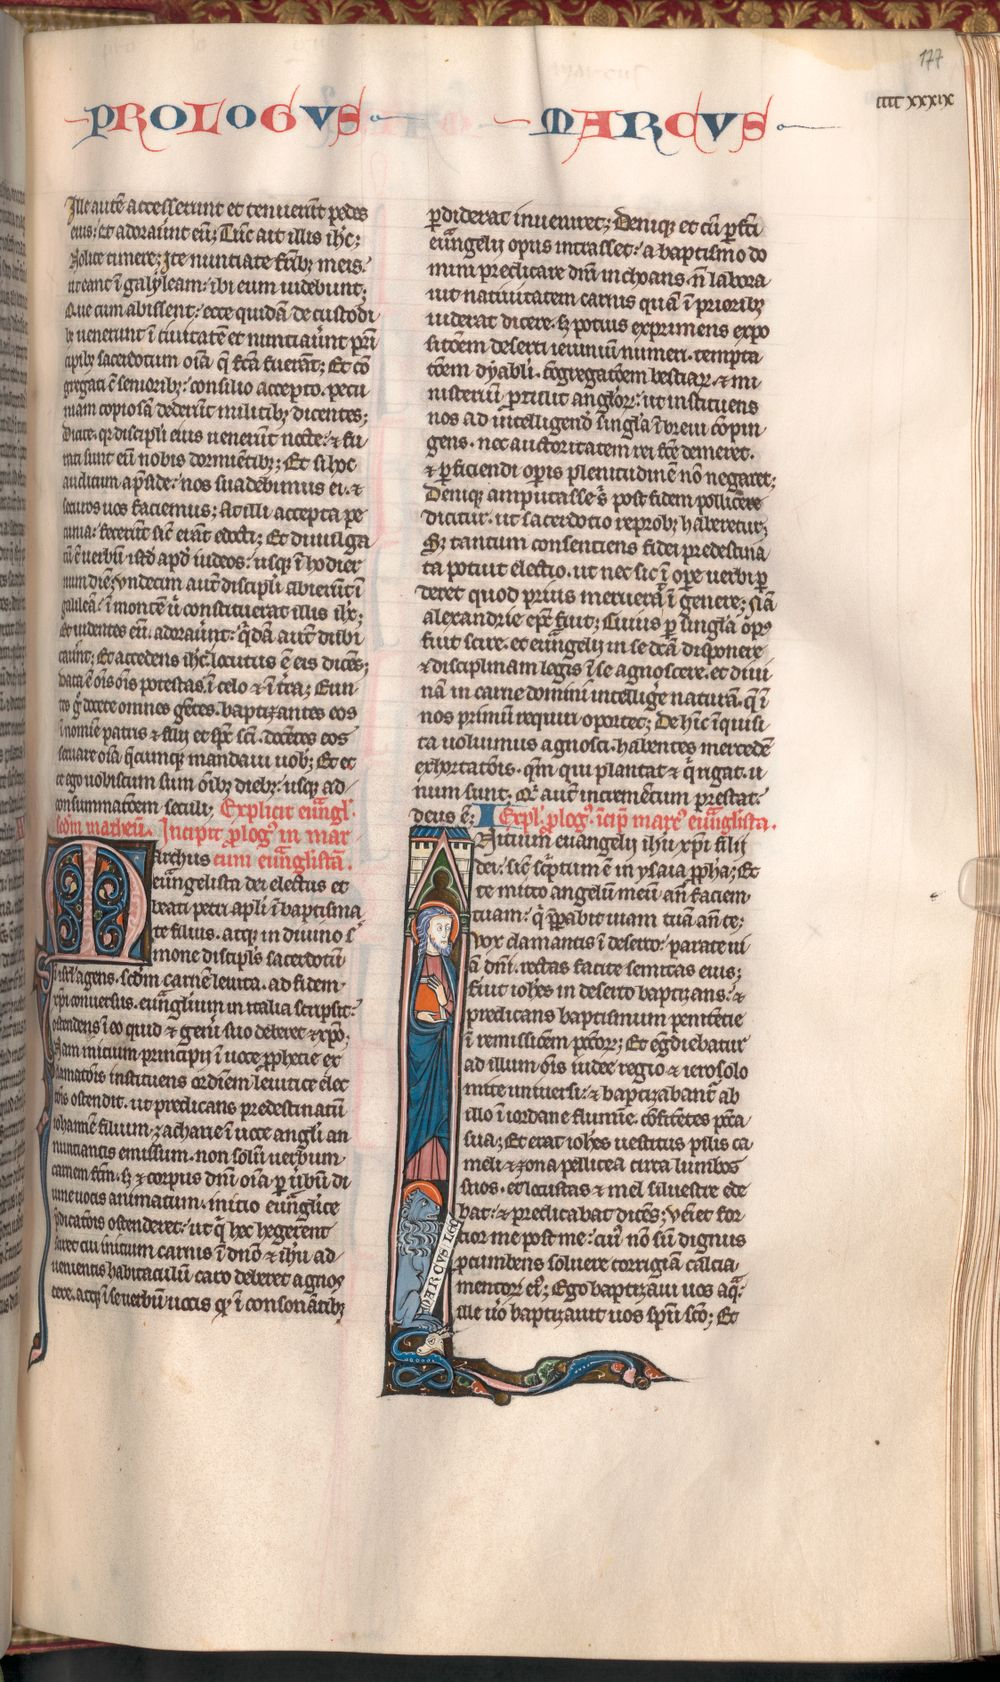 177
CCCC XXXIX
PROLOGVS MARCVS
Ille autē accesserunt et tenuerūt pedes
eius: et adorauīnt eū; Tūc ait illis ihc̄;
Nolite timere; Ite nuntiate frībꝫ meis:
ut eant ī galyleam: ibi eum uidebunt;
Que cum abissent: ecce quidā de custodi
bꝫ uenerunt ī ciuitatē et nuntiauīnt prī
cipibꝫ sacerdotum oīa q̄ fc̄a fuerāt; Et cō
gregati c̄ senioribꝫ: consilio accepto. pecu
niam copiosā dederūt militibꝫ dicentes;
Dicite. qꝛ discipli eius uenerūt nocte: ⁊ fu
rati sunt eū nobis dormiētibꝫ; Et si hoc
auditum a p̄side: nos suadebimus ei. ⁊
securos uos faciemus; At illi accepta pe
cunia: fecerūt sic̄ erāt edocti; Et diuulga
tū ē uerbū istđ apđ iudeos: usqꝫ ī hodier
num diē; Vndecim aut̄ discipli abierūt ī
galileā: ī montē ū constituerat illis ihc̄;
Et uidentes eū. adorauīnt: q̄dā aut̄ dubi
tauīnt; Et accedens ihc̄ locutus ē eis dicēs;
Data ē oīs potestas. ī celo ⁊ ī t̄ra; Eun
tes g̊ docete omnes gētes. baptizantes eos
ī nomīe patris ⁊ filij et sp̄c sc̄i. docētes eos
seruare oīa q̄cumqꝫ mandaui uob̄; Et ec
ce ego uobiscum sum oībꝫ diebꝫ: usqꝫ ad
consummatōem seculi; Explicit euāngl̄.
scđm matheū. Incipit p̄log᷒ in mar
archus cum euāngl̄istā.
euāngelista dei electus et
beati petri apl̄i ī baptisma
te filius. atqꝫ in diuino s̄
mone discipl̄s sacerdotiū
ī isrl̄ agens. scđm carnē leuita. ad fidem
xp̄i conuersus. euānglium in italia scripsit:
ostendens ī eo quid ⁊ gen̄i suo deberet ⁊ xp̄o;
Nam initium principij ī uoce p̄phetie ex
clamatōis instituens ordīem leuitice elec
tōis ostendit. ut predicans predestinatū
iohannē filium zacharie ī uoce angl̄i an
nuntiantis emissum. non solū uerbum
carnem fc̄m. sꝫ ⁊ corpus dn̄i oīa p̱ ūbū di
uine uocis animatum. initio euānglice
p̄dicatōis ostenderet: ut q̄ hec legerent
sciret cui initium carnis ī dn̄o ⁊ ihū ad
uenientis habitaculū caro deberet agnos
cere. atqꝫ ī se uerbū uocis qđ ī consonātibꝫ
p̱diderat inueniret; Deniqꝫ et cū p̱fc̄i
euāngelij opus intrasset: a baptismo do
mini predicare dn̄i inchoans. n̄ labora
uit natiuitatem carnis quā ī prioribꝫ
uiderat dicere. sꝫ potius exprimens expo
sitōem deserti ieiuniū numeri. tempta
tōem dyabl̄i. cōgregatōem bestiaꝝ. ⁊ mi
nisteriū p̱tulit anglōꝝ: ut instituens
nos ad intelligendū singl̄a ī breui cōpin
gens. nec auctoritatem rei fc̄e demeret.
⁊ p̱ficiendi opis plenitudinē nō negaret;
Deniqꝫ amputasse s̄ post fidem pollicē̄
dicitur. ut sacerdotio reprobꝫ haberetur;
Sꝫ tantum consentiens fidei predestina
ta potuit electio. ut nec sic ī ope uerbi p̱
deret quod prius meruerat ī genere; Nā
alexandrie ep̄c fuit; Cuius p̱ singl̄a op᷒
fuit scire. et euāngelij in se dc̄a disponere
⁊ disciplinam legis ī se agnoscere. et diui
nā in carne domini intelliḡe naturā. q̄ ī
nos primū requiri oportet; De hīc īquisi
ta uolumus agnosci. habentes mercedē
exhortatōis. qm̄ qui plantat ⁊ q̄ rigat. u
num sunt. Qͥ aut̄ incremētum prestat:
deus ē; Expl̄. p̄log᷒. īcip̄ marc᷒ euāngl̄ista.
Nitium euangelij ihū xp̄i filij
dei. sic̄ sc̄ptum ē in ysaia p̄pha; Et
ce mitto angelū meū añ faciem
tuam: q̄ p̄parabit uiam tuā añ te;
Vox clamantis ī deserto: parate ui
ā dn̄i. rectas facite semitas eius;
Fuit ioh̄es in deserto baptizans: ⁊
predicans baptismum penitētie
ī remissiōem pc̄coꝝ; Et eg̊diebatur
ad illum oīs iudee regio ⁊ ierosolo
mite uniuersi: ⁊ baptizabant̄ ab
illo ī iordane flumīe. cōfitētes pc̄ca
sua; Et erat ioh̄es uestitus pilis ca
meli ⁊ zona pellicea circa lumbos
suos. et locustas ⁊ mel siluestre ede
bat: ⁊ predicabat dicēs; Veīet for
tior me post me: cui᷒ nō sū dignus
p̱cumbens soluere corrigiā calcia
mentoꝝ ei᷒; Ego baptizaui uos aq̄:
ille ū̊o baptizauit uos sp̄u sc̄o; Et
MARCVS LEO